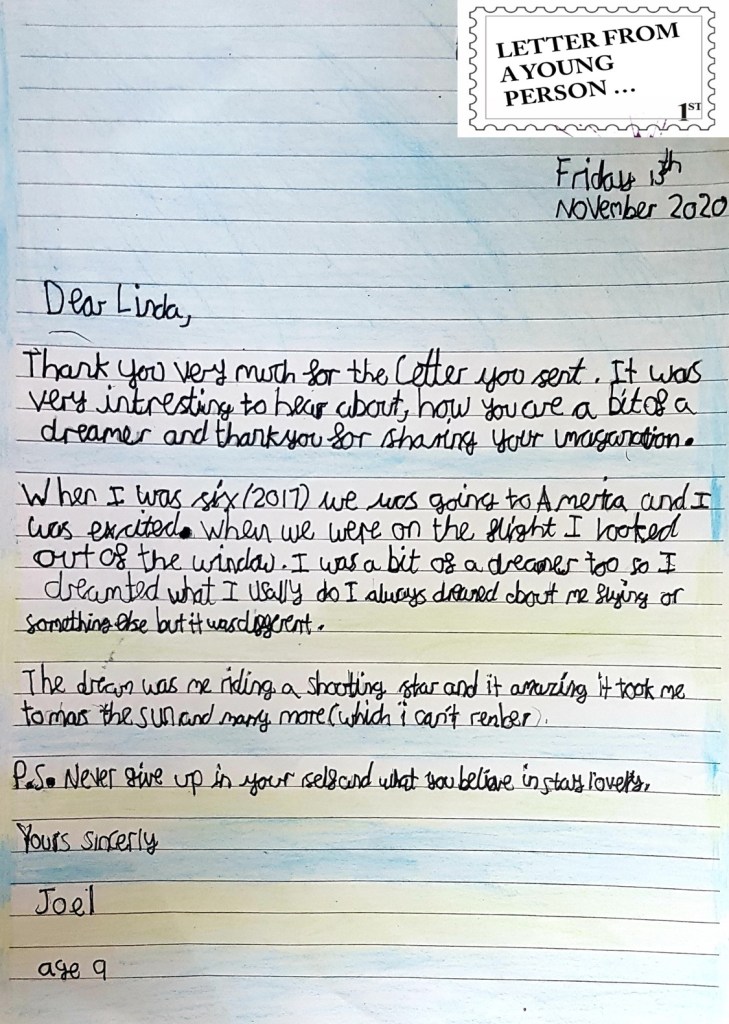 LETTER FROM
A YOUNG
PERSON ...
1ST
Friday 13th
November 2020
Dear Linda,
Thank you very much for the letter you sent. It was
very intresting to hear about, how you are a bit of a
dreamer and thankyou for sharing your imaganation.
When I was six (2017) we was going to America and I
was excited. when we were on the flight I looked
out of the window. I was a bit of a dreamer too so I
dreamted what I usally do I always dreamed about me flying or
something else but it was different.
The dream was me riding a shooting star and it amazing it took me
to mars the sun and many more (which i can't renber).
P.S. Never give up in your self and what you believe in stay lovely.
Yours sincerly
Joel
age 9